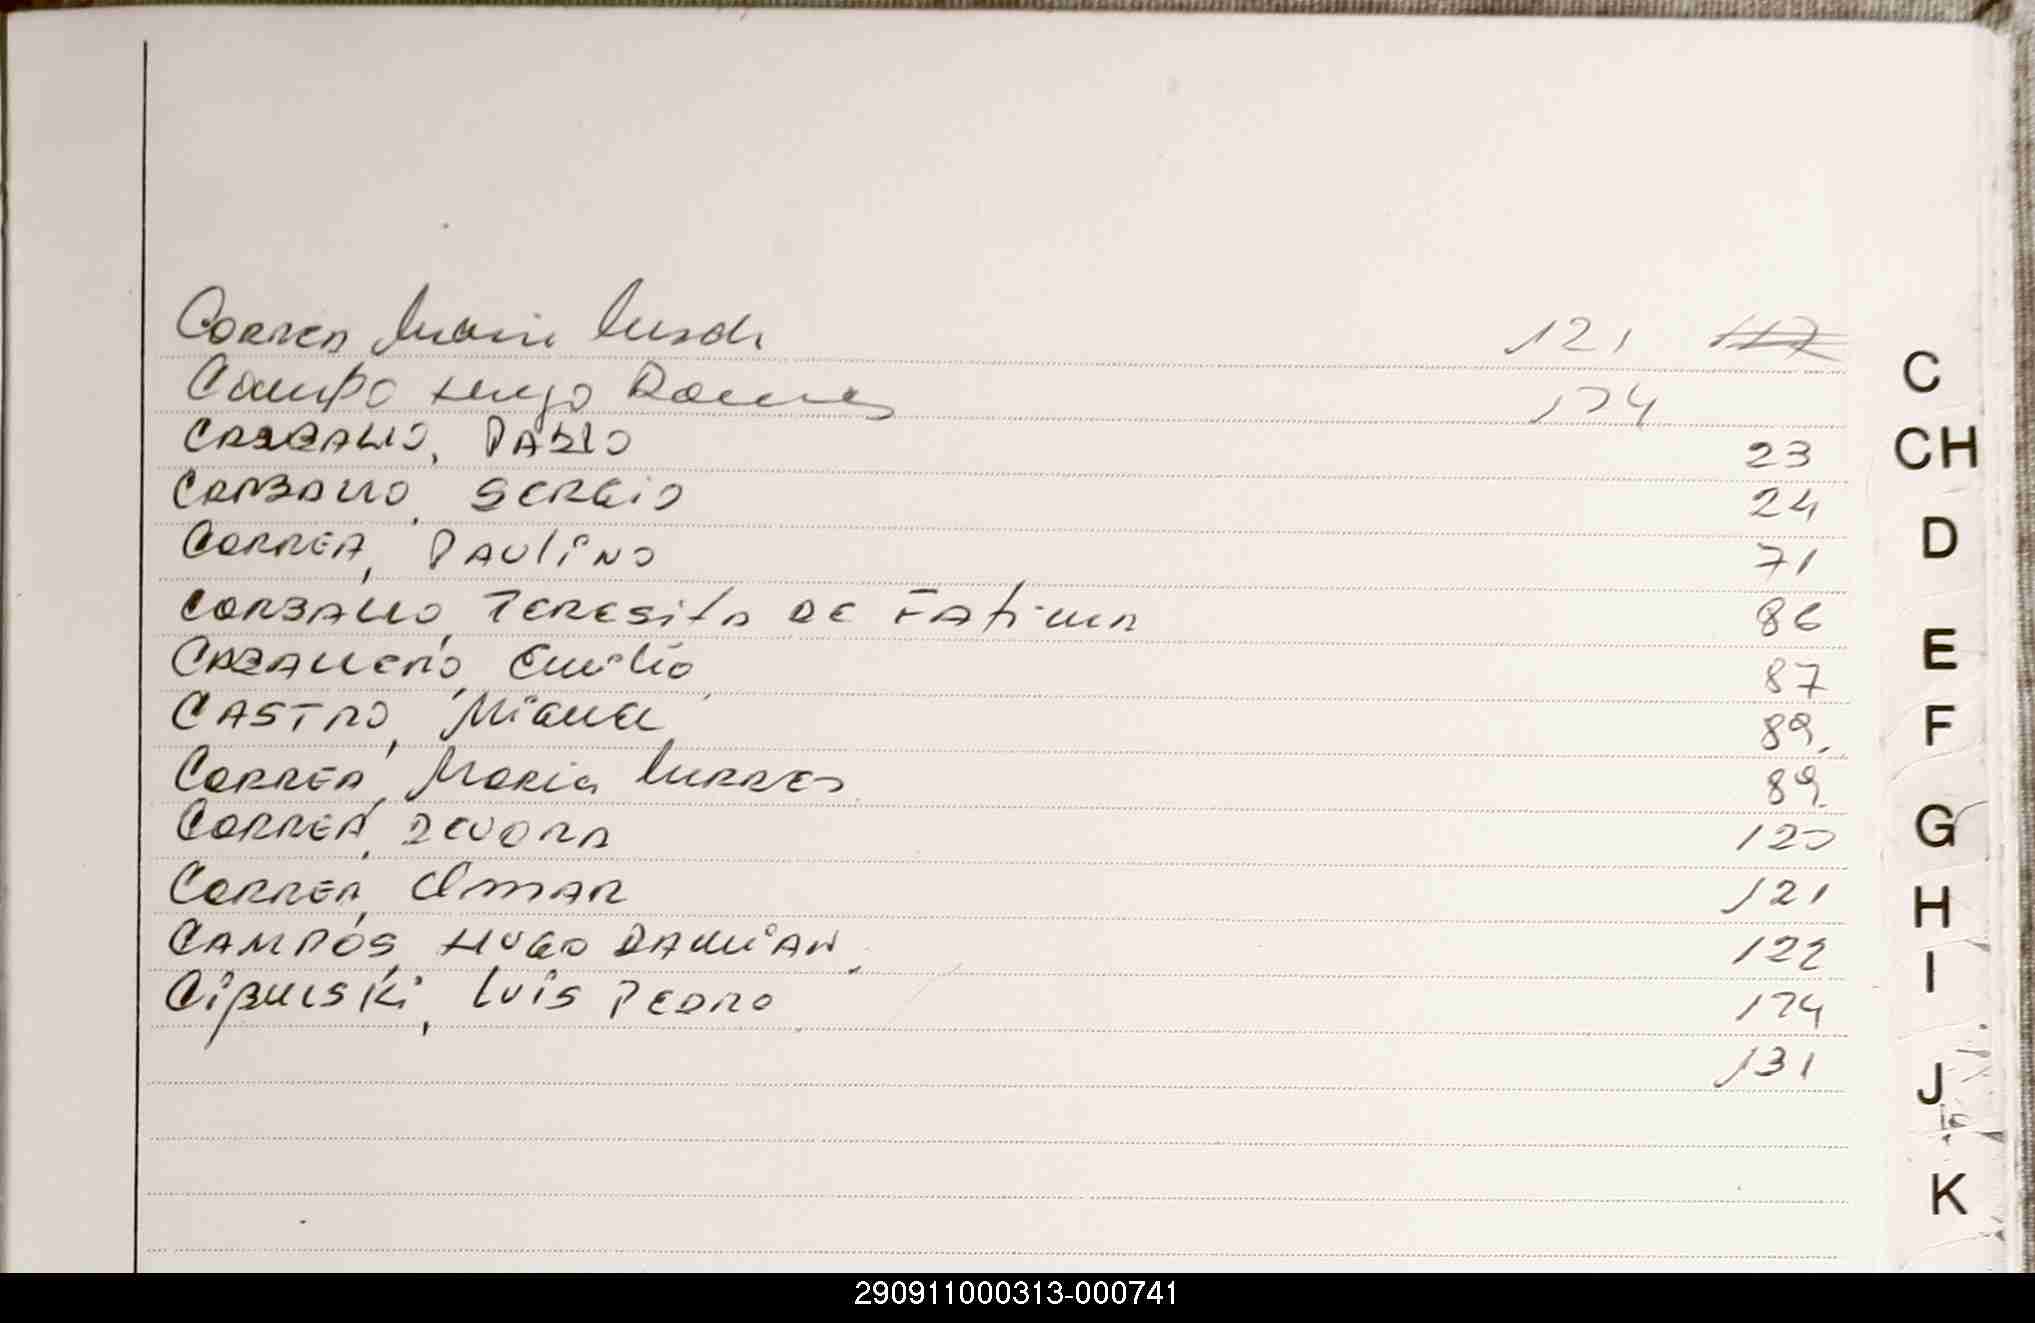 Correa Maria 121 117
Campo Hugo 124
CABALLO, PABLO 23
CARBALLO, SERGIO 24
CORREA, PAULINO 71
CORBALLO, TERESITA DE FATIMA 86
CABALLERO, Emilio 87
CASTRO, MIGUEL 89.
CORREA, MARIA LURDES 89
CORREA, DEVORA 120
CORREA, OMAR 121
CAMPOS, HUGO DAMIAN. 122
LUIS PEDRO 124
131
C
CH
D
E
F
G
H
I
J
K
290911000313-000741